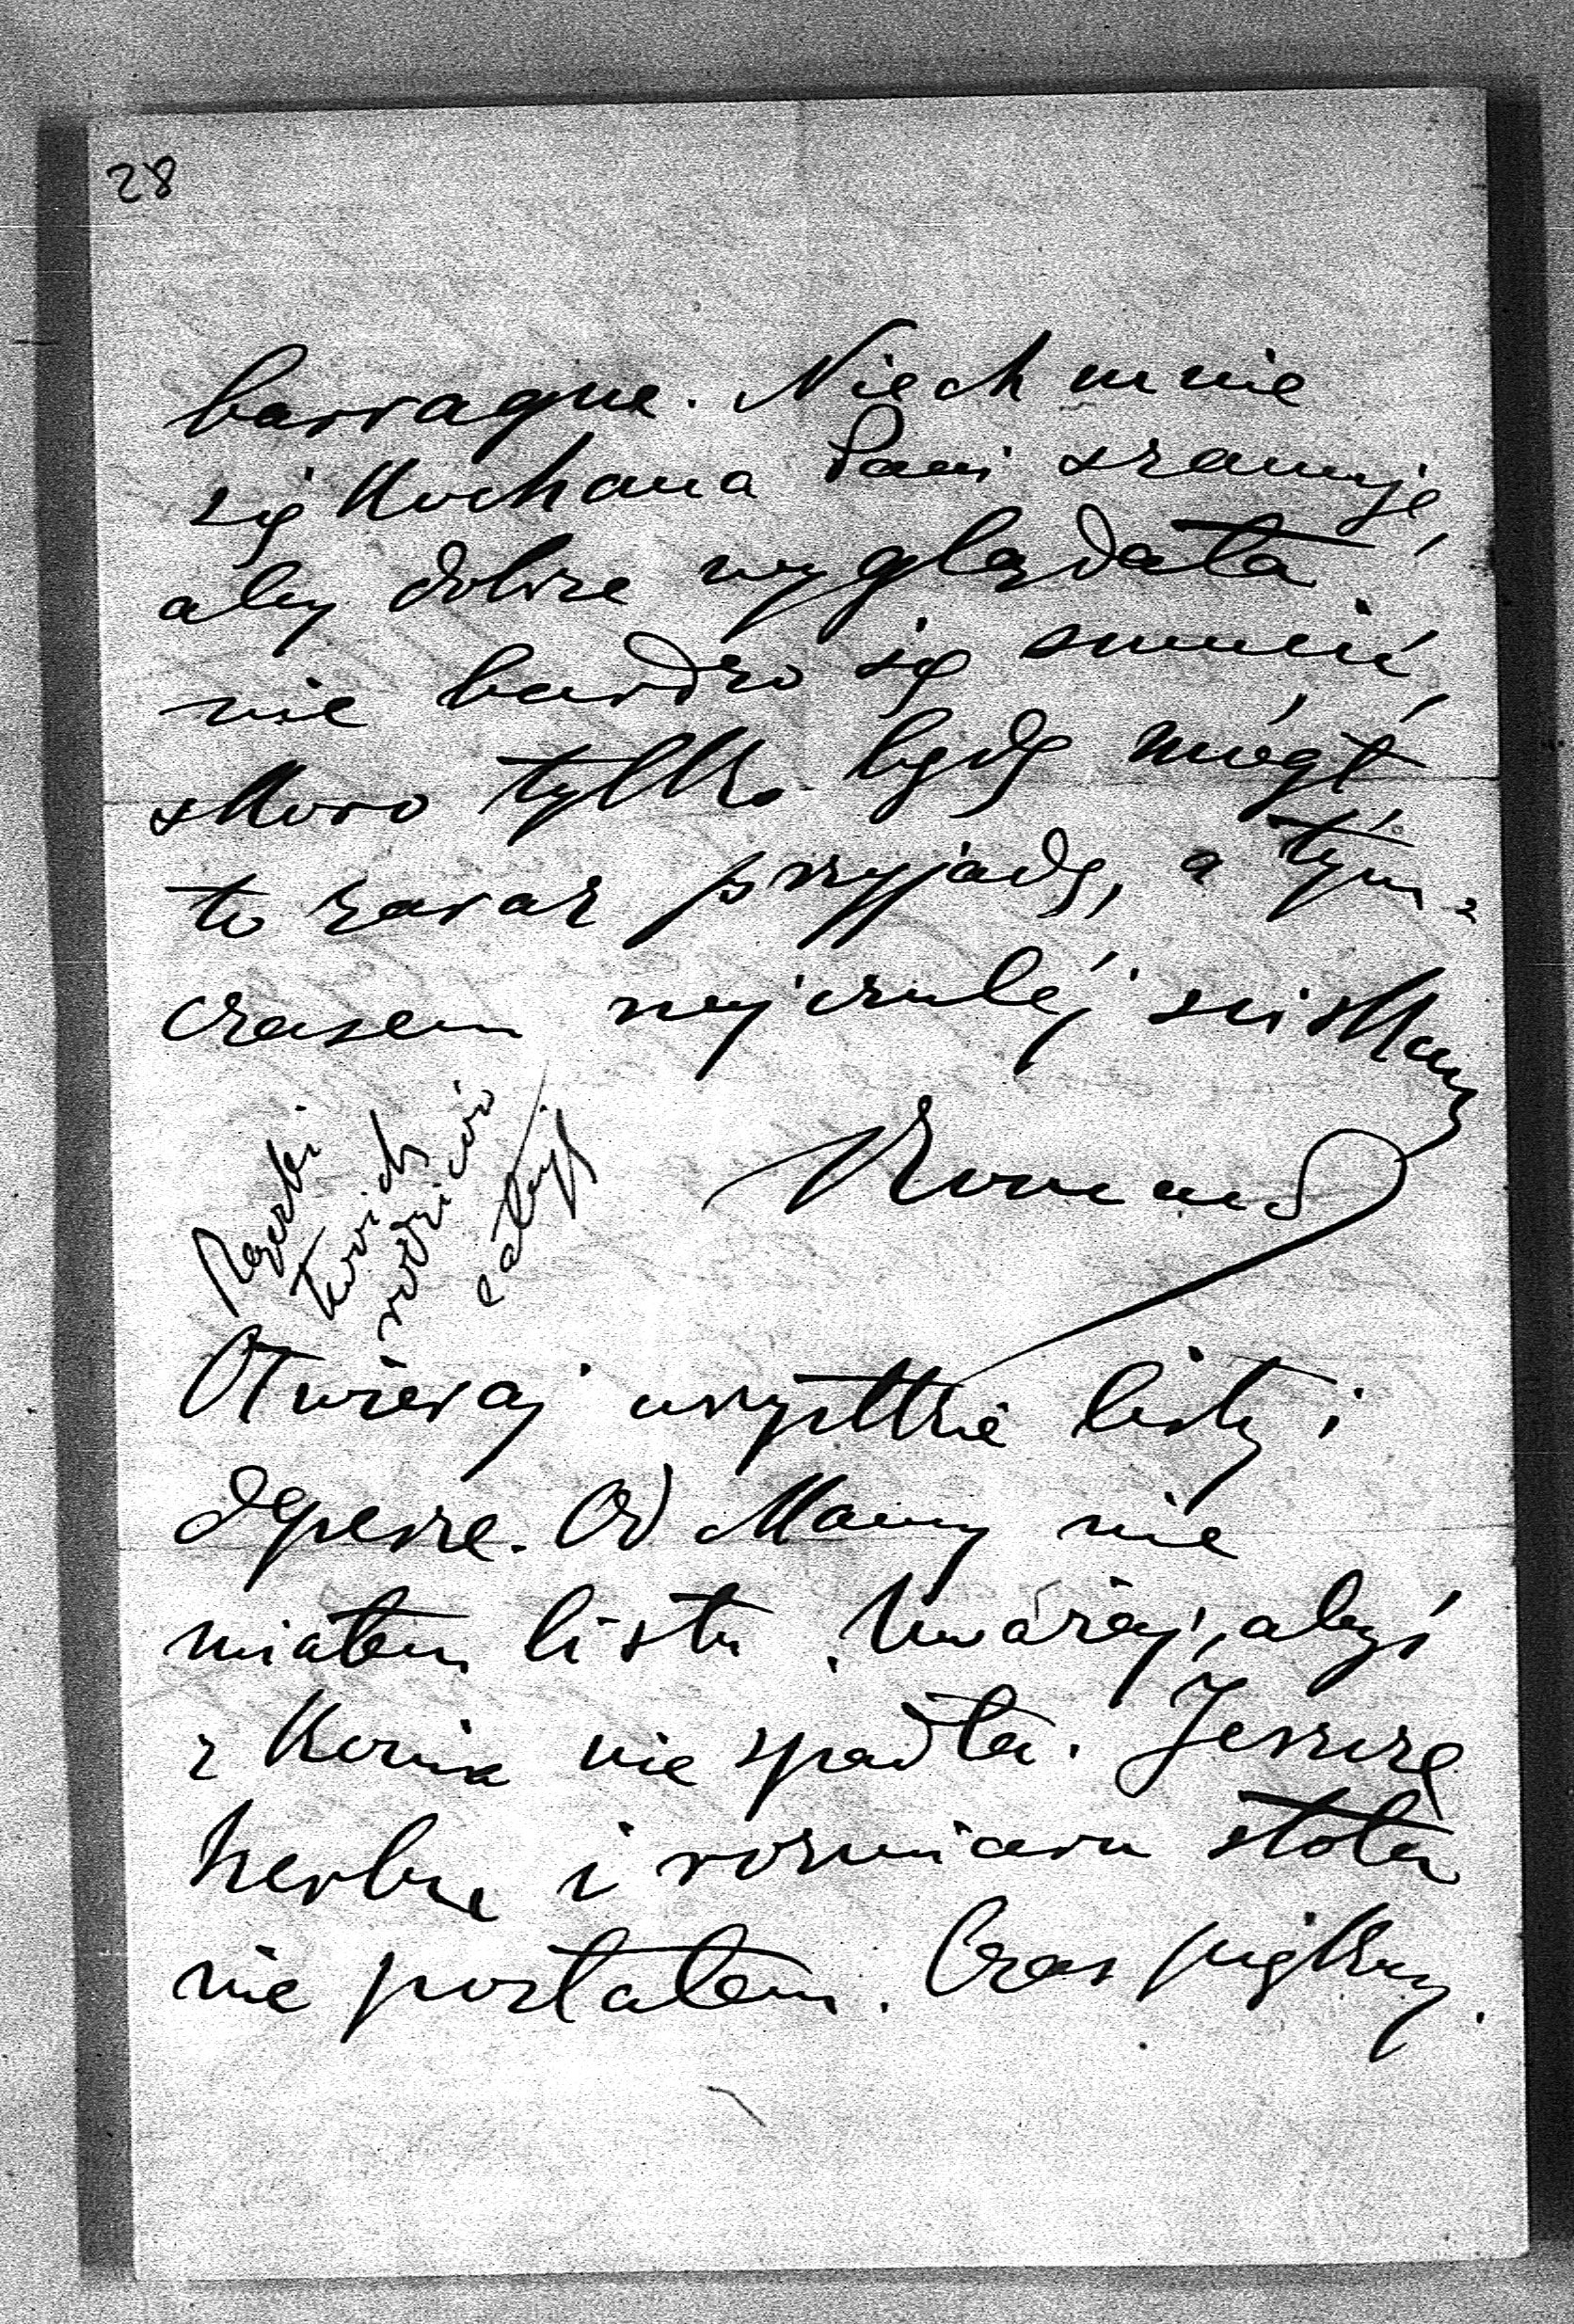 28
barragne. Niech mnie
się Kochana Pani szanuje,
aby dobrze wyglądała i
nie bardzo się smucić,
skoro tylko będę mógł,
to zaraz przyjadę, a tym-
czasem najczulej ściskam
Roman
Rączki
twoich
rodziców
całuję
Otwieraj wszystkie listy i
depesze. Od Mamy nie
miałem listu. Uważaj, abyś
z konia nie spadła. Jeszcze
herbu i rozmiaru stołu
nie posłałem. Czas piękny.